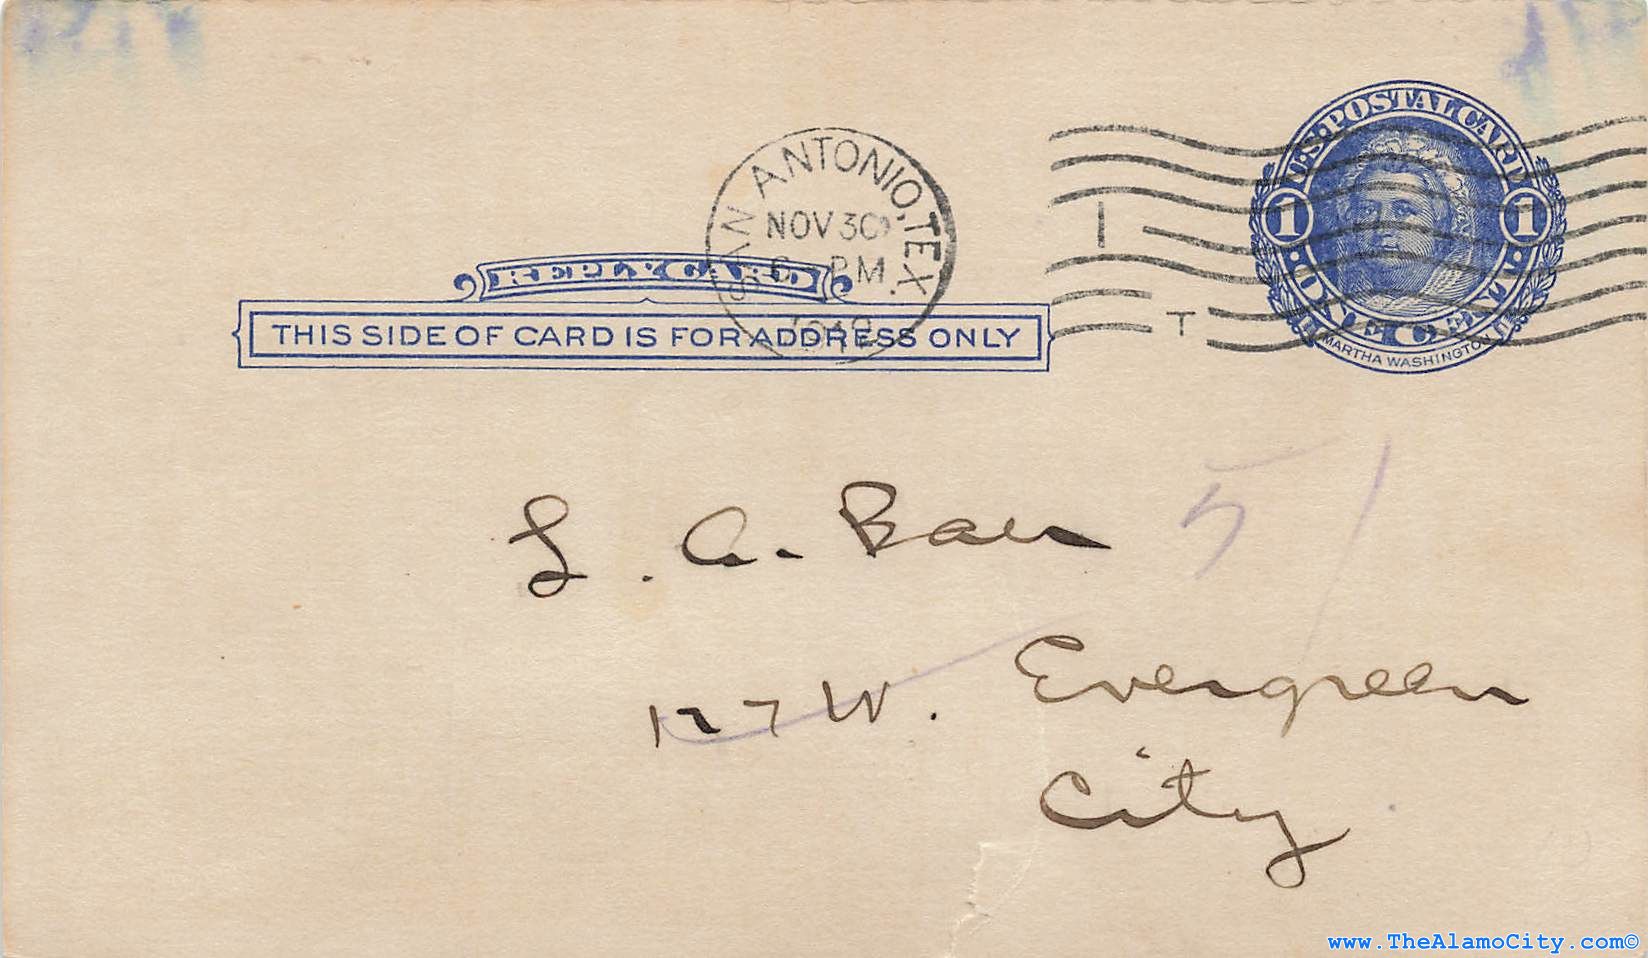 U.S. POSTAL CARD
1 1
ONE CENT
MARTHA WASHINGTON
SAN ANTONIO, TEX.
NOV 30
PM
1
T
REPLY CARD
THIS SIDE OF CARD IS FOR ADDRESS ONLY
L. A. Baer
5
127 W. Evergreen
City
www.TheAlamoCity.com©